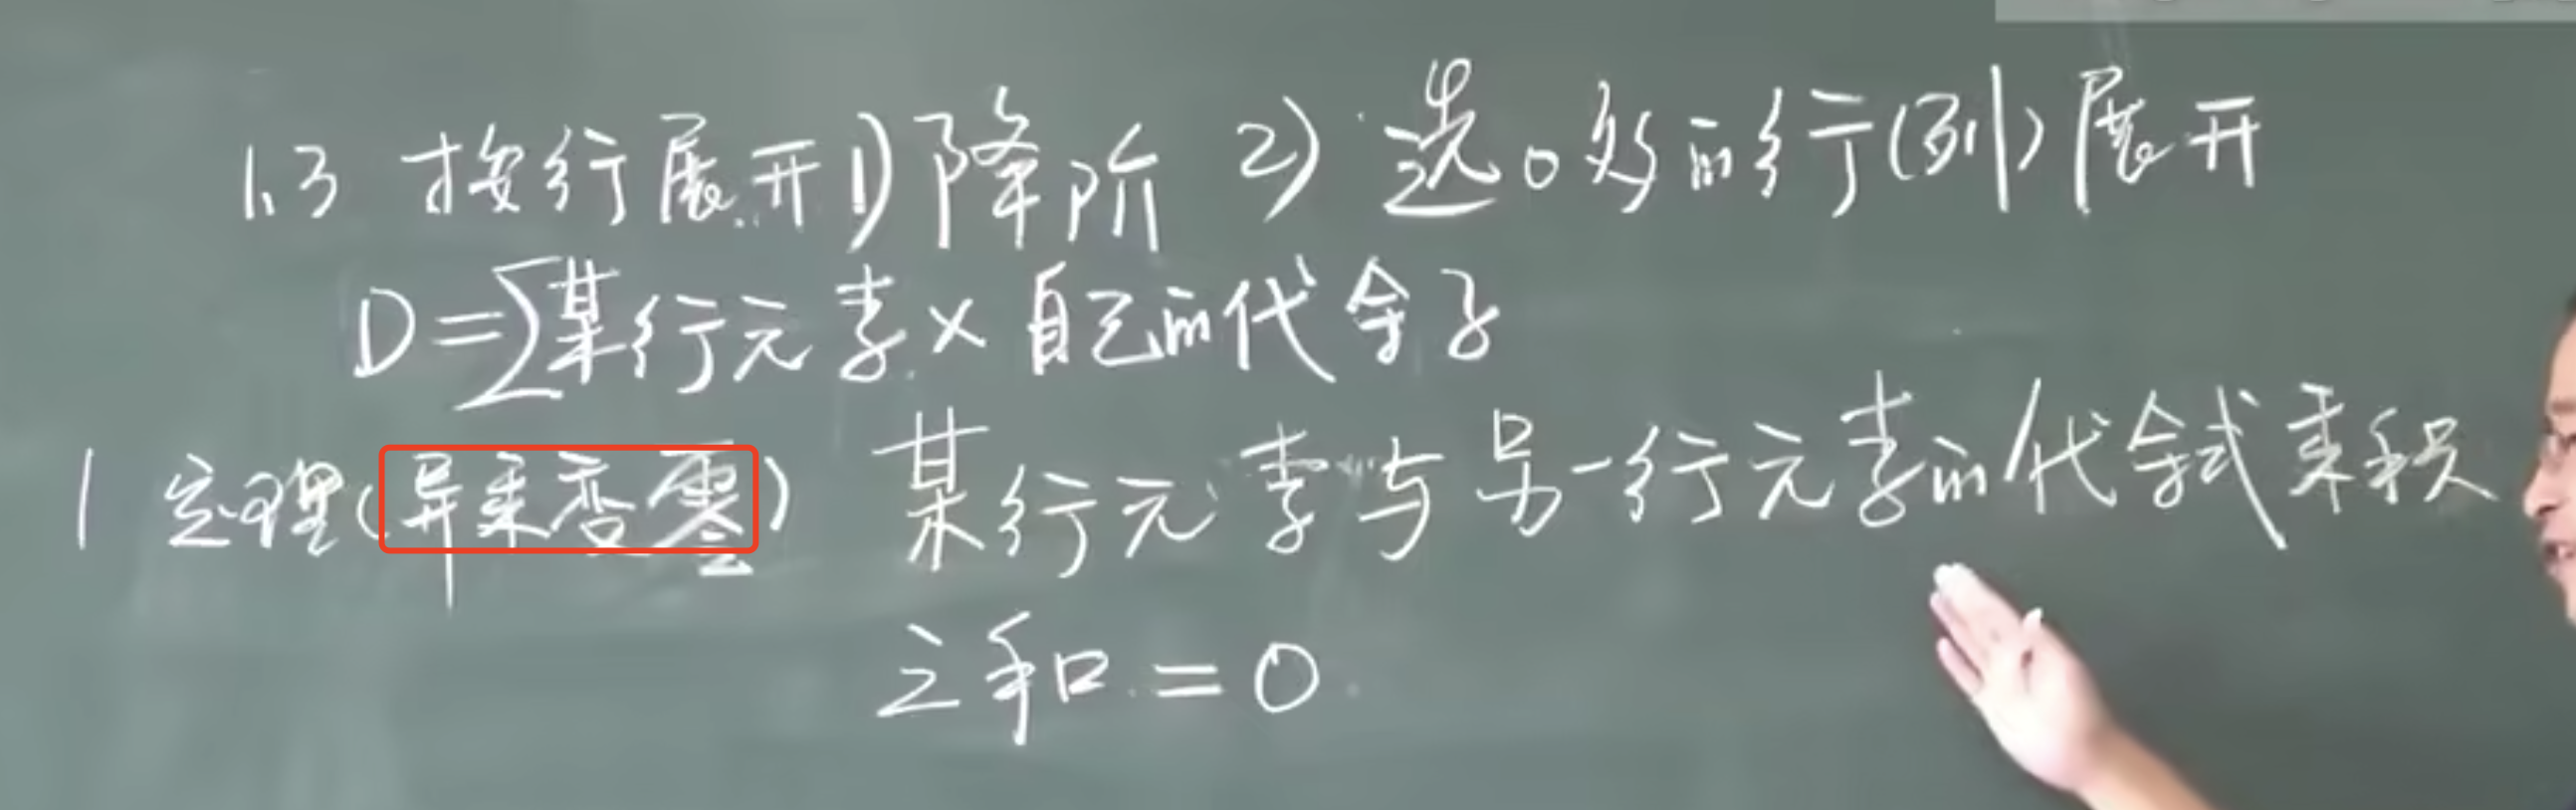 1.3 按行展开 1) 降阶 2) 选0多的行(列)展开
D=∑某行元素×自己的代余子
1 定理(异乘变零) 某行元素与另一行元素的代余式乘积
之和=0